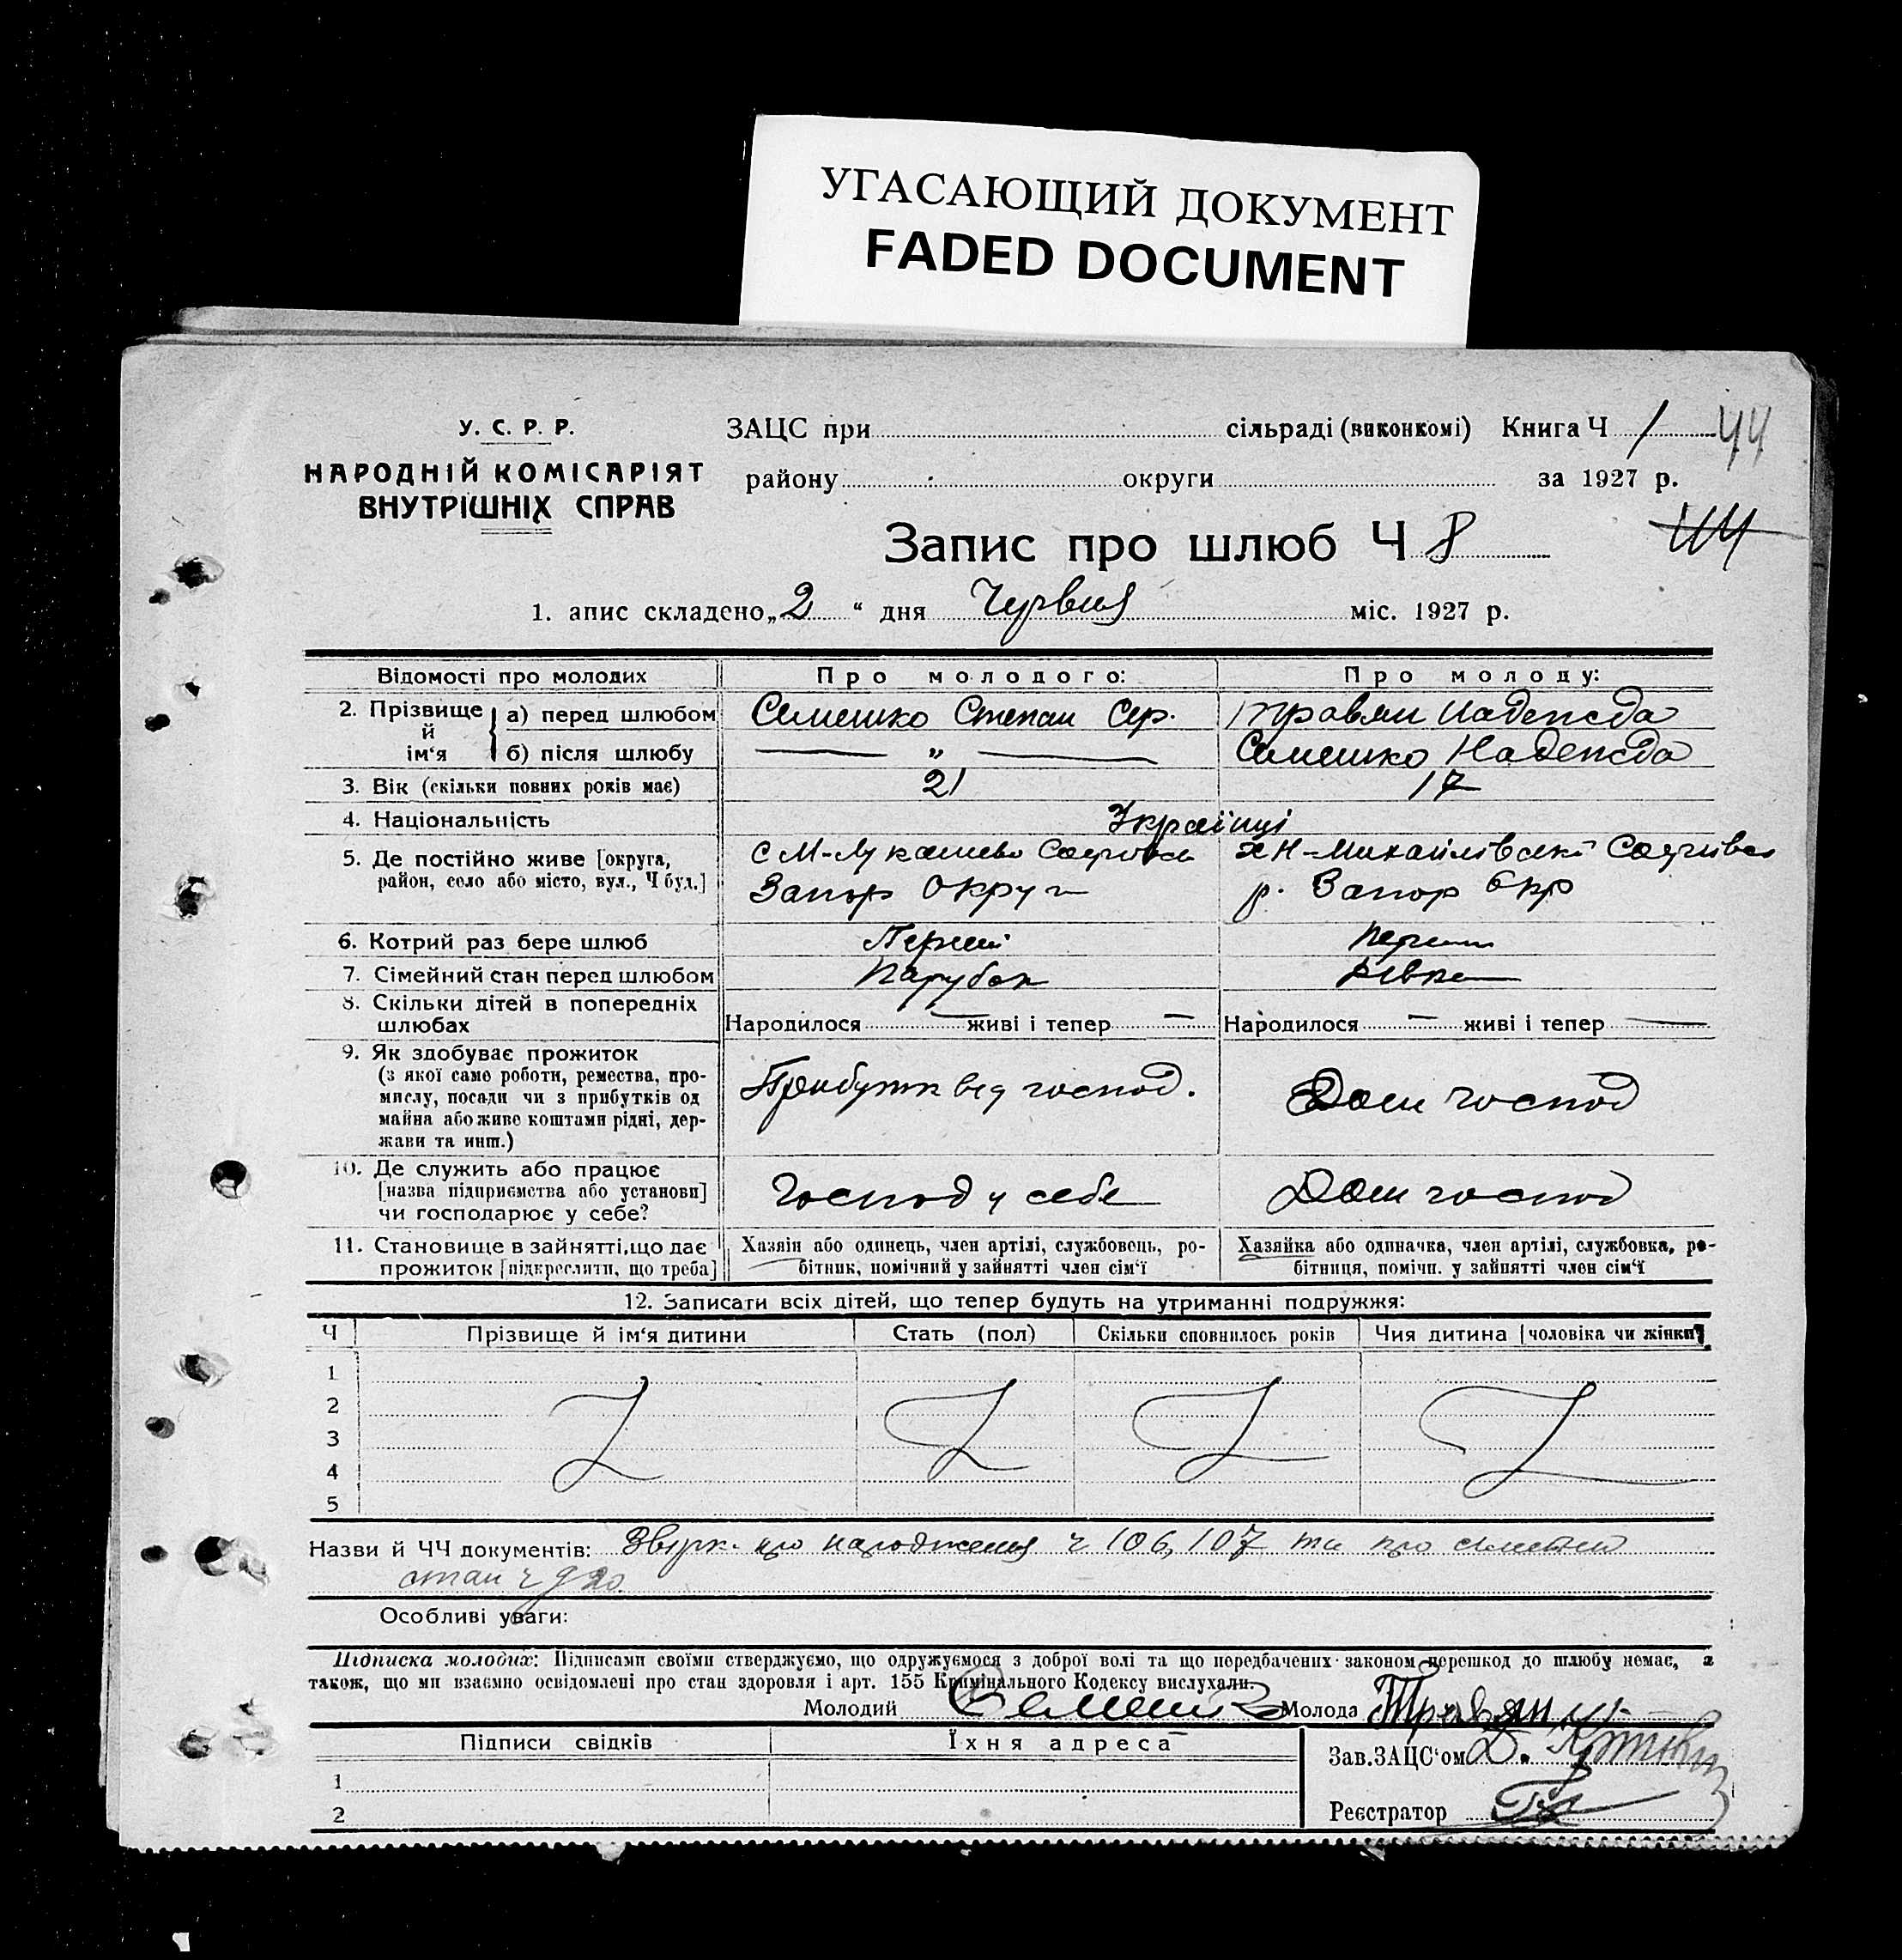 УГАСАЮЩИЙ ДОКУМЕНТ
FADED DOCUMENT
У. С. Р. Р.
НАРОДНІЙ КОМІСАРІЯТ
ВНУТРІШНІХ СПРАВ
ЗАЦС при сільраді (виконкомі) Книга Ч 1 44
району округи за 1927 р.
Запис про шлюб Ч 8
1. апис складено „2“ дня Червня міс. 1927 р.
Відомості про молодих Про молодого: Про молоду:
2. Прізвище й ім‘я а) перед шлюбом Семешко Степан Сер. Травян Надежда
б) після шлюбу — „ — Семешко Надежда
3. Вік (скільки повних років має) 21 17
4. Національність Українці
5. Де постійно живе [округа, с М-Лукашево х Н-Михайлівські
район, село або місто, вул., Ч буд.] Запор Округи р. Запор Окр
6. Котрий раз бере шлюб Перший перший
7. Сімейний стан перед шлюбом Парубок Дівка
8. Скільки дітей в попередніх
шлюбах Народилося — живі і тепер — Народилося — живі і тепер —
9. Як здобуває прожиток
(з якої само роботи, ремества, про-
мислу, посади чи з прибутків од Прибутк від господ. Дом господ
майна або живе коштами рідні, дер-
жави та инш.)
10. Де служить або працює
[назва підприємства або установи] Господ у себе Дом господ
чи господарює у себе?
11. Становище в зайнятті, що дає Хазяїн або одинець, член артілі, службовець, ро- Хазяйка або одиначка, член артілі, службовка, ро-
прожиток [підкреслити, що треба] бітник, помічний у зайнятті член сім‘ї бітниця, помічн. у зайнятті член сім‘ї
12. Записати всіх дітей, що тепер будуть на утриманні подружжя:
Ч Прізвище й ім‘я дитини Стать (пол) Скільки сповнилось років Чия дитина [чоловіка чи жінки]
1
2
3
4
5
Назви й ЧЧ документів: про народження ч 106, 107 та про
стан ч
Особливі уваги:
Підписка молодих: Підписами своїми стверджуємо, що одружуємося з доброї волі та що передбачених законом перешкод до шлюбу немає, а
також, що ми взаємно освідомлені про стан здоровля і арт. 155 Кримінального Кодексу вислухали.
Молодий Семешко Молода Травян
Підписи свідків Їхня адреса Зав. ЗАЦС‘ом
1
2 Реєстратор